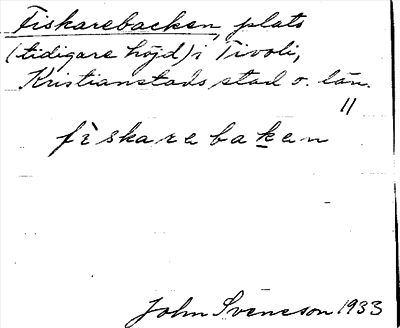 Fiskarebacken, plats
(tidigare höjd) i Tivoli,
Kristianstads stad o. län.
11
fìskarebaken
John Svensson 1933